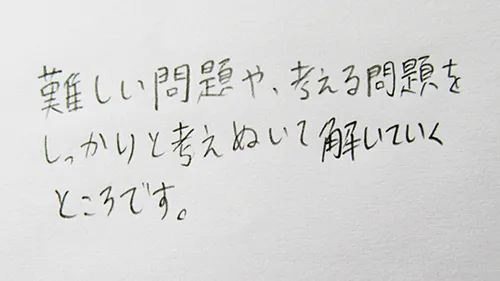 難しい問題や、考える問題を
しっかりと考えぬいて解いていく
ところです。